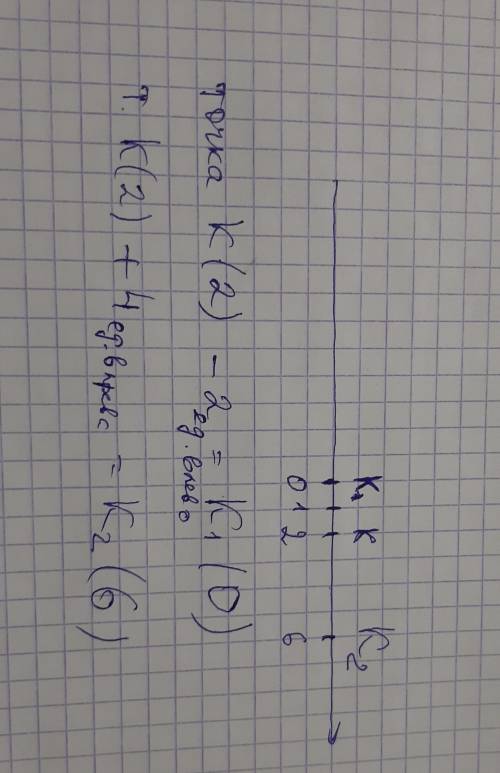 K₁ K K₂
0 1 2 6
точка K(2) - 2 ед. влево = K₁(0)
т. K(2) + 4 ед. вправо = K₂(6)